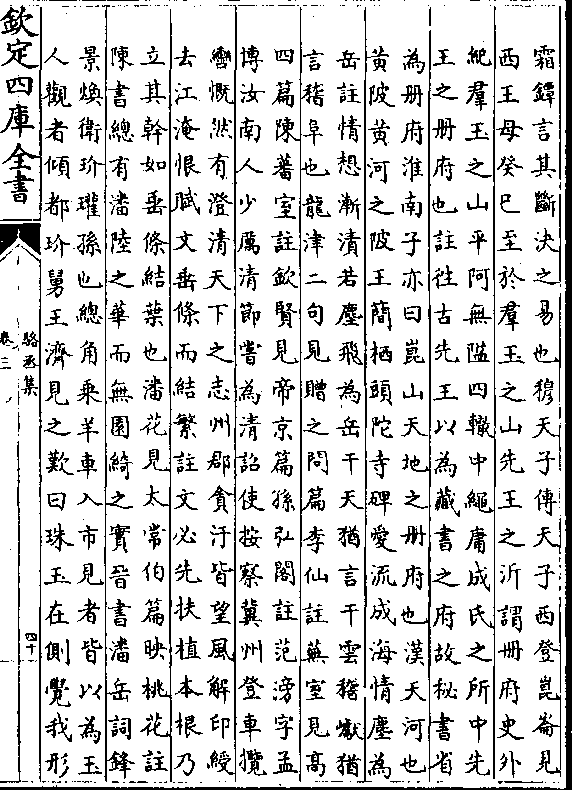 霜鐔言其斷決之易也穆天子傳天子西登崑崙見
西王母癸巳至於羣玉之山先王之所謂册府史外
紀羣玉之山平阿無隘四轍中繩庸成氏之所中先
王之册府也註徃古先王以為藏書之府故秘書省
為册府淮南子亦曰崑山天地之册府也漢天河也
黄陂黄河之陂王簡栖頭陀寺碑愛流成海情塵為
岳註情想漸漬若塵飛為岳干天猶言干雲稽嶽猶
言稽阜也龍津二句見贈之問篇李仙註蕪室見高
四篇陳蕃室註欽賢見帝京篇孫弘閣註范滂字孟
博汝南人少厲清節嘗為清詔使按察冀州登車攬
轡慨然有澄清天下之志州郡貪汙皆望風解印綬
去江淹恨賦文垂條而結繁註文必先扶植本根乃
立其幹如垂條結葉也潘花見太常伯篇映桃花註
陳書總有潘陸之華而無園綺之實晉書潘岳詞鋒
景煥衛玠璪孫也總角乘羊車入市見者皆以為玉
人觀者傾都玠舅王濟見之歎曰珠玉在側覺我形
欽定四庫全書
駱丞集
卷三
四十